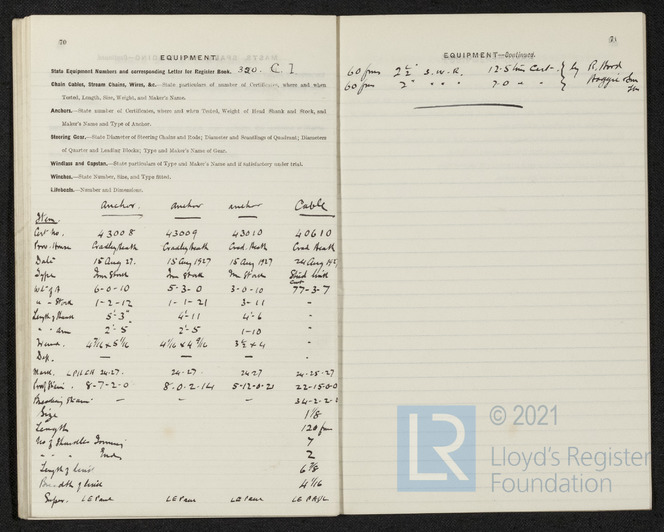 70
EQUIPMENT.
State Equipment Numbers and corresponding Letter for Register Book. 320. C. I
Chain Cables, Stream Chains, Wires, &c.—State particulars of number of Certificates, where and when
Tested, Length, Size, Weight, and Maker's Name.
Anchors.—State number of Certificates, where and when Tested, Weight of Head Shank and Stock, and
Maker's Name and Type of Anchor.
Steering Gear.—State Diameter of Steering Chains and Rods; Diameter and Scantlings of Quadrant; Diameters
of Quarter and Leading Blocks; Type and Maker's Name of Gear.
Windlass and Capstan.—State particulars of Type and Maker's Name and if satisfactory under trial.
Winches.—State Number, Size, and Type fitted.
Lifeboats.—Number and Dimensions.
anchor. anchor anchor Cable
Item.
Cert No. 43008 43009 43010 40610
Prov. House Cradley Heath Cradley Heath Crad. Heath Crad Heath
Date 15 Aug 27. 15 Aug 1927 15 Aug 1927 24 Aug 1927
Type Iron Stock Iron Stock Iron Stock Stud link
Wt of A 6-0-10 5-3-0 3-0-10 Cwt 77-3-7
" " Stock 1-2-12 1-1-21 3-11 -
Length of Shank 5'-3" 4'-11 4'-6 -
" " arm 2'-5 2'-5 1-10 -
4 7/16 x 5 1/16 4 1/16 x 4 9/16 3 1/2 x 4 -
— — -
24.27. 24.27. 24.27 24-25-27
Proof Strain. 8-7-2-0 8-0-2-14 5-12-0-21 22-15-0-0
Breaking Strain - - - 34-2-2-
Size 1 1/8
Length 120 fms
No of Shackles Joining 7
" " " End 2
Length of link 6 7/8
Breadth of link 4 1/16
Super. LE Page LE Page LE Page LE PAGE
71
EQUIPMENT—Continued.
60 fms 2 1/2 S.W.R. 12.5 tons Cert. by R. Hood
60 fms 2" " " " 7.0 " " Haggie & Son
© 2021
LR
Lloyd's Register
Foundation